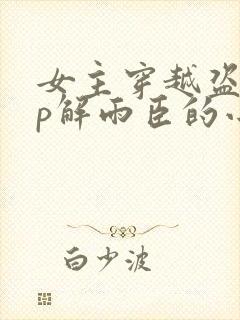 女主穿越盗
p解雨臣的小
白少波